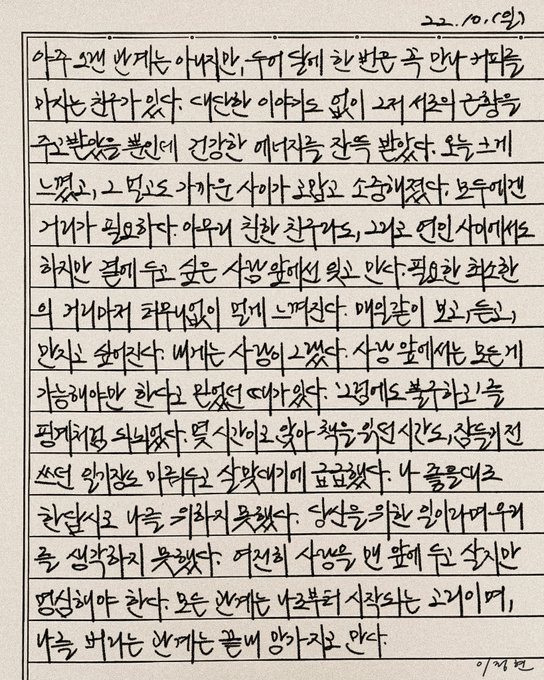 22.10.(일)
아주 오랜 관계는 아니지만, 두어 달에 한 번은 꼭 만나 커피를
마시는 친구가 있다. 대단한 이야기도 없이 그저 서로의 근황을
주고받았을 뿐인데 건강한 에너지를 잔뜩 받았다. 오늘 크게
느꼈고, 그 멀고도 가까운 사이가 고맙고 소중해졌다. 모두에겐
거리가 필요하다. 아무리 친한 친구라도, 그리고 연인 사이에서도
하지만 곁에 두고 싶은 사람 앞에선 잊고 만다. 필요한 최소한
의 거리마저 터무니없이 멀게 느껴진다. 매일같이 보고, 듣고,
만지고 싶어진다. 내게는 사랑이 그랬다. 사랑 앞에서는 모든 게
가능해야만 한다고 믿었던 때가 있다. '그럼에도 불구하고'를
핑계처럼 되뇌었다. 몇 시간이고 앉아 책을 읽던 시간도, 잠들기 전
쓰던 일기장도 미뤄두고 살 맞대기에 급급했다. 나 좋을대로
한답시고 나를 위하지 못했다. 당신을 위한 일이라며 우리
를 생각하지 못했다. 여전히 사랑을 맨 앞에 두고 살지만
명심해야 한다. 모든 관계는 나로부터 시작되는 고리이며,
나를 버리는 관계는 끝내 망가지고 만다.
이정현